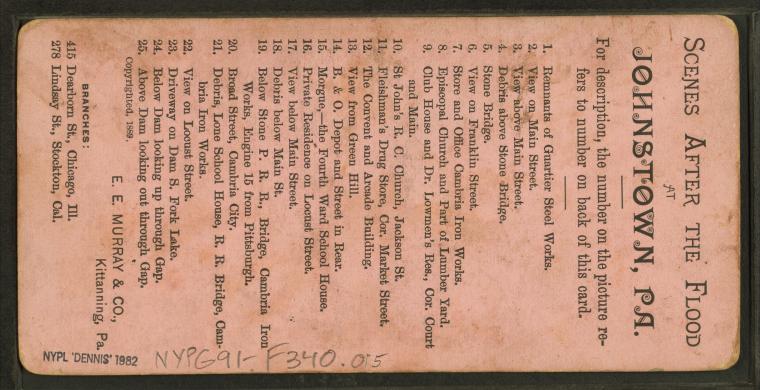 SCENES AFTER THE FLOOD
AT
JOHNSTOWN, PA.
For description, the number on the picture re-
fers to number on back of this card.
1. Remnants of Guartier Steel Works.
2. View on Main Street.
3. View above Main Street.
4. Debris above Stone Bridge.
5. Stone Bridge.
6. View on Franklin Street.
7. Store and Office Cambria Iron Works.
8. Episcopal Church and Part of Lumber Yard.
9. Club House and Dr. Lowmen's Res., Cor. Court
and Main.
10. St John's R. C. Church, Jackson St.
11. Fleishman's Drug Store, Cor. Market Street.
12. The Convent and Arcade Building.
13. View from Green Hill.
14. B. & O. Depot and Street in Rear.
15. Morgue,—the Fourth Ward School House.
16. Private Residence on Locust Street.
17. View below Main Street.
18. Debris below Main St.
19. Below Stone P. R. R., Bridge, Cambria Iron
Works, Engine 15 from Pittsburgh.
20. Broad Street, Cambria City.
21. Debris, Lone School House, R. R. Bridge, Cam-
bria Iron Works.
22. View on Locust Street.
23. Driveway on Dam S. Fork Lake.
24. Below Dam looking up through Gap.
25. Above Dam looking out through Gap.
Copyrighted, 1889.
E. E. MURRAY & CO.,
Kittanning, Pa.
BRANCHES:
415 Dearborn St., Chicago, Ill.
278 Lindsay St., Stockton, Cal.
NYPL 'DENNIS' 1982
NYPG91-F340.015